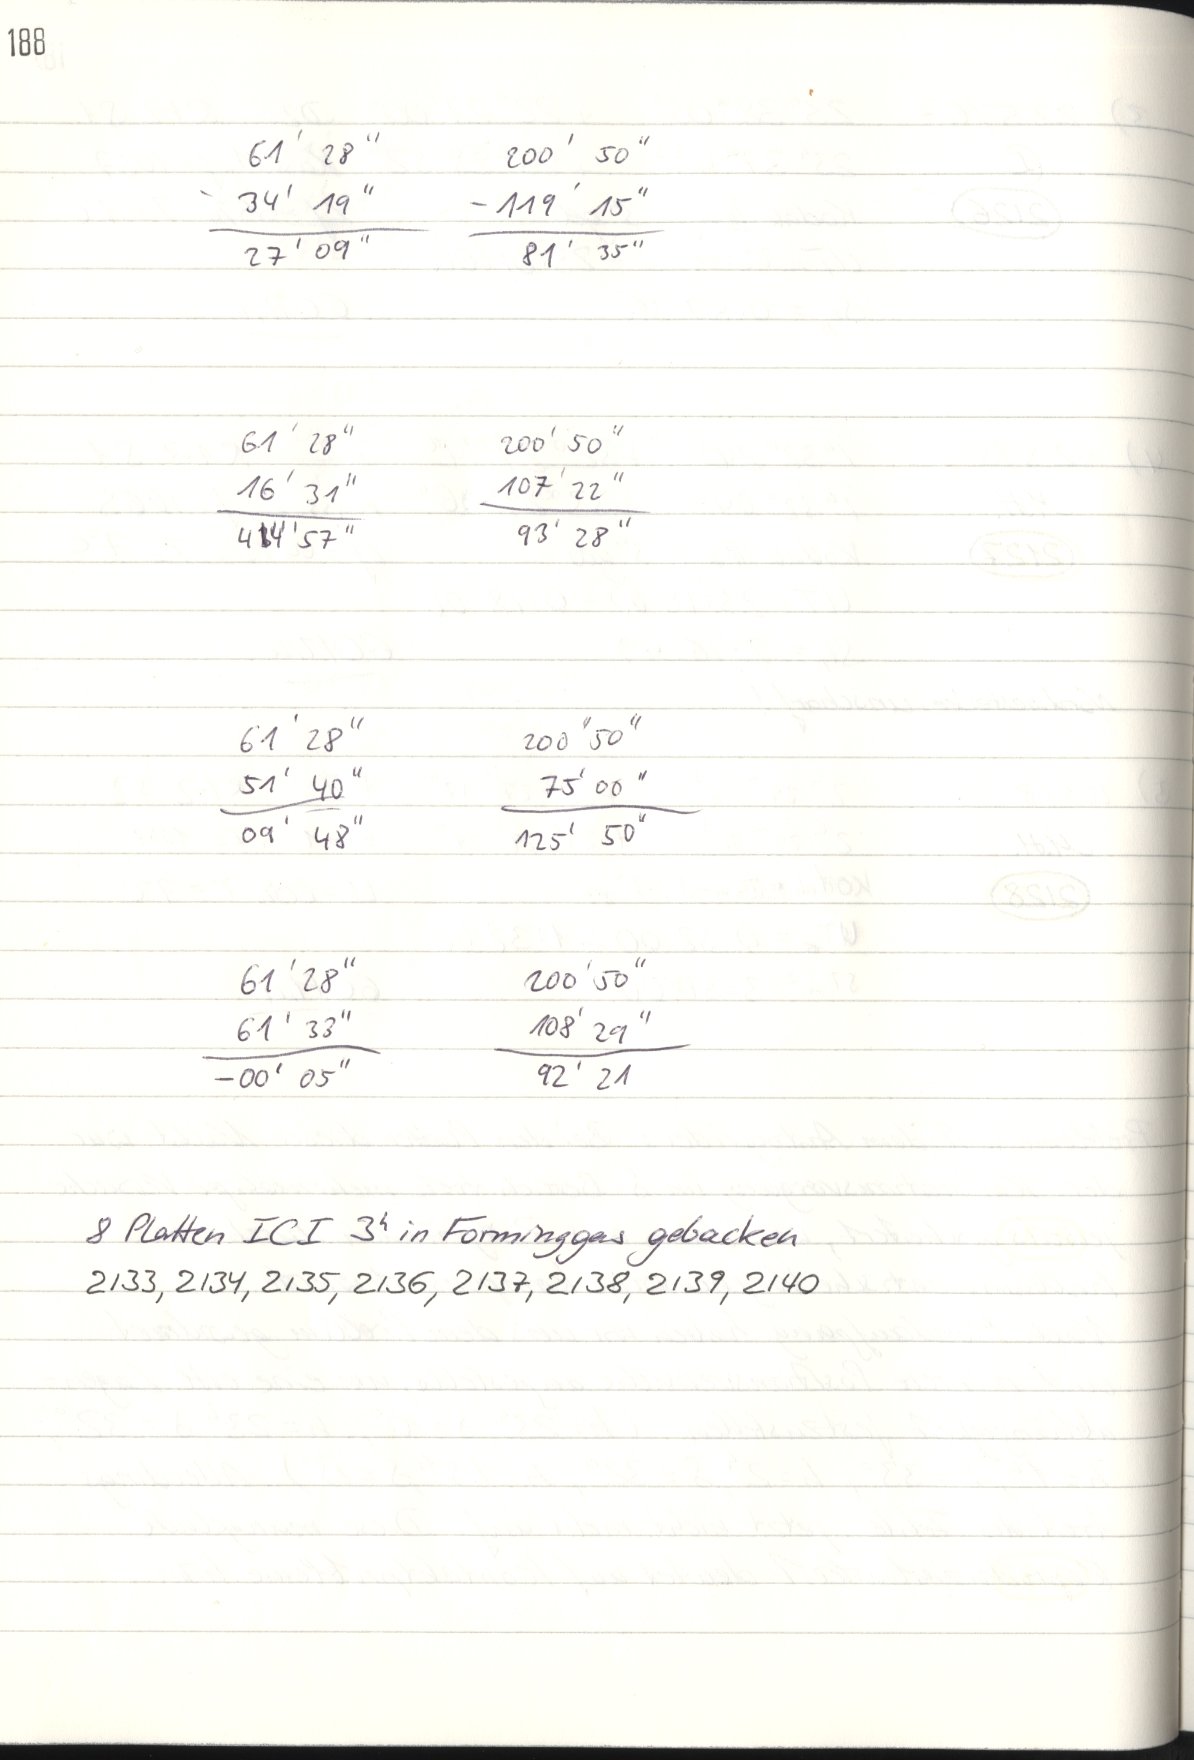 188
61' 28" 200' 50"
- 34' 19" - 119' 15"
27' 09" 81' 35"
61' 28" 200' 50"
16' 31" 107' 22"
44' 57" 93' 28"
61' 28" 200" 50"
51' 40" 75' 00"
09' 48" 125' 50"
61' 28" 200' 50"
61' 33" 108' 29"
-00' 05" 92' 21
8 Platten ICI 3h in Forminggas gebacken
2133, 2134, 2135, 2136, 2137, 2138, 2139, 2140